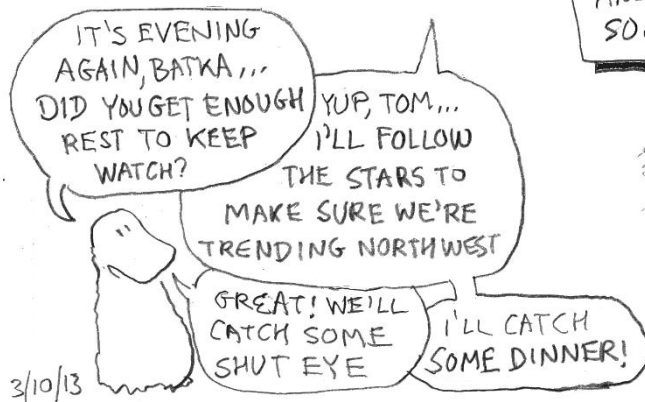 SO
IT'S EVENING
AGAIN, BATKA,,,
DID YOU GET ENOUGH
REST TO KEEP
WATCH?
YUP, TOM,,,
I'LL FOLLOW
THE STARS TO
MAKE SURE WE'RE
TRENDING NORTHWEST
GREAT! WE'LL
CATCH SOME
SHUT EYE
I'LL CATCH
SOME DINNER!
3/10/13